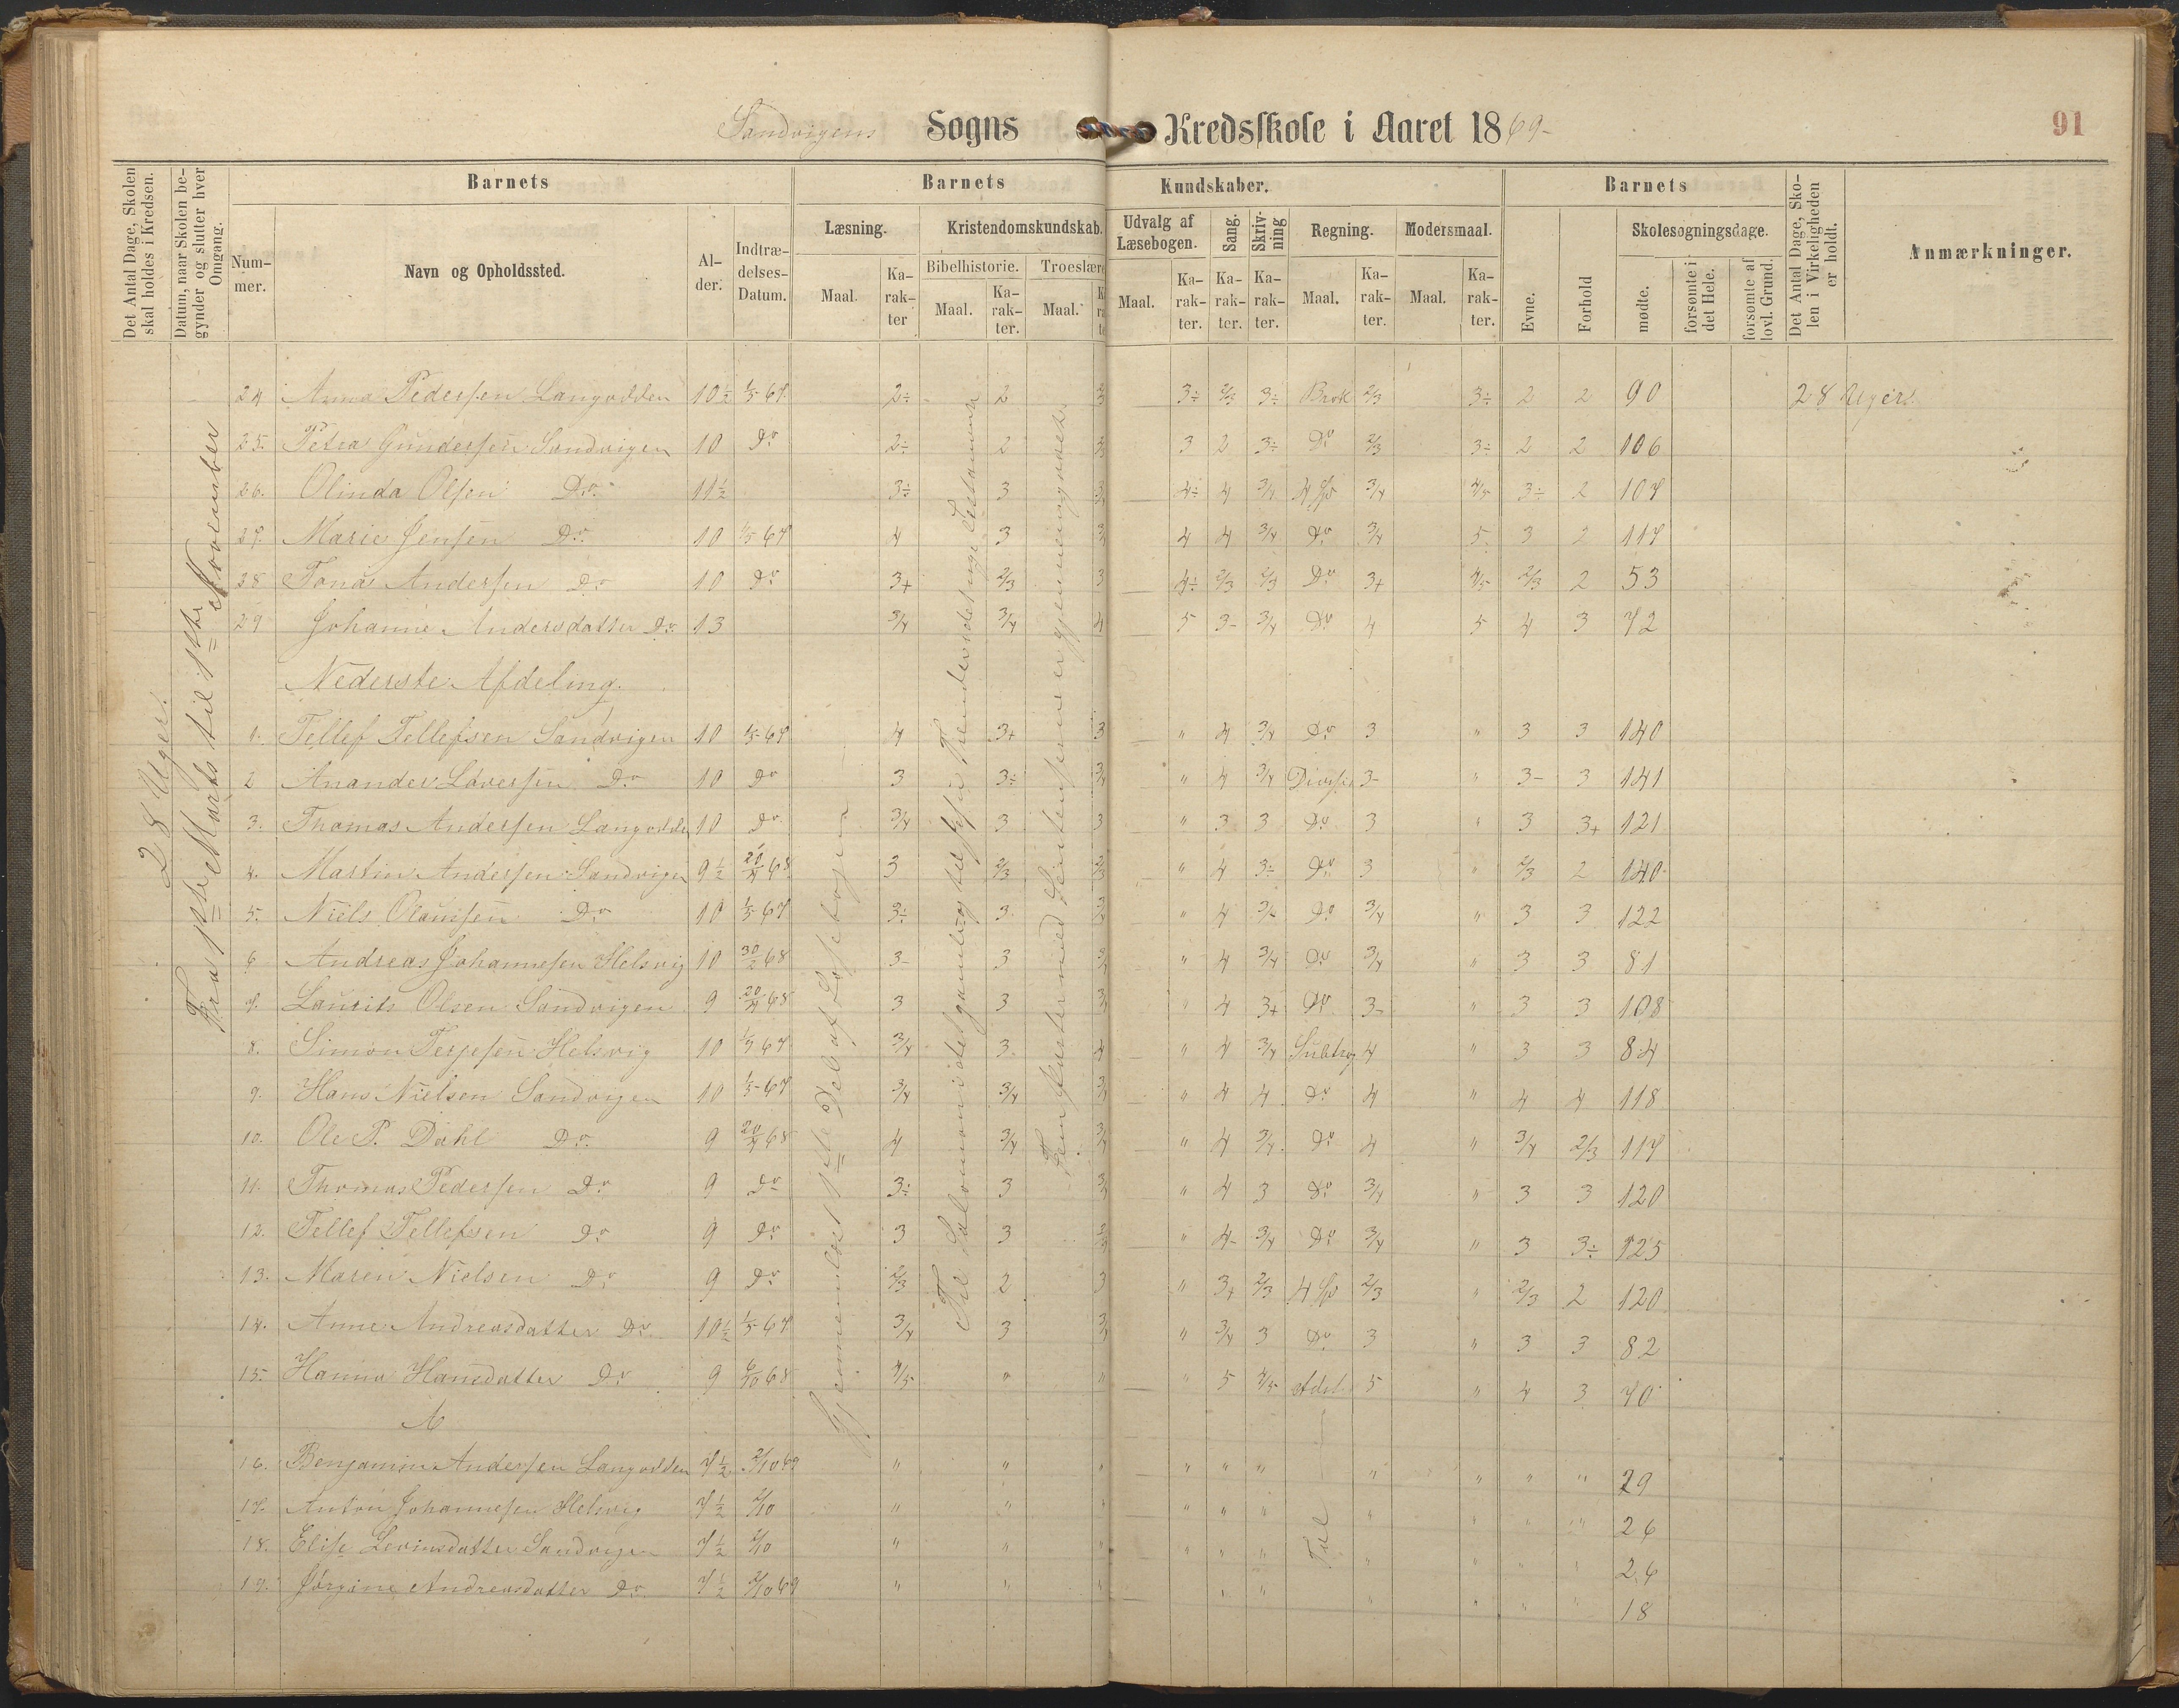 Sandvigens Sogns Kredsskole i Aaret 1869-
91
Det Antal Dage, Skolen skal holdes i Kredsen.
Datum, naar Skolen begynder og slutter hver Omgang.
Barnets
Num-mer.
Navn og Opholdssted.
Al-der.
Indtræ-delses-Datum.
Barnets Kundskaber.
Læsning.
Maal.
Ka-rak-ter
Kristendomskundskab.
Bibelhistorie.
Maal.
Ka-rak-ter.
Troeslære
Maal.
Udvalg af Læsebogen.
Maal.
Ka-rak-ter.
Sang.
Ka-rak-ter.
Skriv-ning
Ka-rak-ter.
Regning.
Maal.
Ka-rak-ter.
Modersmaal.
Maal.
Ka-rak-ter.
Barnets
Evne.
Forhold
Skolesøgningsdage.
mødte.
forsømte i det Hele.
forsømte af lovl. Grund.
Det Antal Dage, Sko-len i Virkeligheden er holdt.
Anmærkninger.
28 Uger.
Fra 1ste Marts til 1ste November
Gjennemlæst 1ste Del af Læsebogen
24 Anna Pedersen Langodden 10½ 1/5 67 2÷ 2 2/3 3÷ 2/3 3÷ Brøk 2/3 3÷ 2 2 90 28 Uger.
25. Petra Gundersen Sandvigen 10 Do 2÷ 2 3 2 3÷ Do 2/3 3÷ 2 2 106
26. Olinda Olsen Do 11½ 3÷ 3 4÷ 4 3/4 4 Sp 3/4 4/5 3÷ 2 107
27. Marie Jensen Do 10 1/5 67 4 3 4 4 3/4 Do 3/4 5 3 2 117
28 Tonas Andersen Do 10 Do 3+ 2/3 3 4÷ 2/3 2/3 Do 3+ 4/5 2/3 2 53
29 Johanne Andersdatter Do 13 3/4 3/4 4 5 3- 3/4 Do 4 5 4 3 72
Nederste Afdeling.
1. Tellef Tellefsen Sandvigen 10 1/5 67 4 3+ 3 " 4 3/4 Do 3 " 3 3 140
2 Anander Løversen Do 10 Do 3 3÷ 3/4 " 4 3/4 Divisjo 3- " 3- 3 141
3. Thomas Andersen Langodden 10 Do 3/4 3 3 " 3 3 Do 3 " 3 3+ 121
4. Martin Andersen Sandvigen 9½ 20/4 68 3 2/3 2/3 " 4 3÷ Do 3 " 2/3 2 140
5. Niels Olausen Do 10 1/5 67 3÷ 3 " 4 3/4 Do 3/4 " 3 3 122
6 Andreas Johannesen Helsvig 10 30/2 68 3- 3 3/4 " 4 3/4 Do 3/4 " 3 3 81
7. Laurits Olsen Sandvigen 9 20/4 68 3 3 " 4 3+ Do 3- " 3 3 108
8. Simon Terjesen Helsvig 10 1/5 67 3/4 3 4 " 4 3/4 Subtrag 4 " 3 3 84
9. Hans Nielsen Sandvigen 10 1/5 67 3/4 3/4 3/4 " 4 4 Do 4 " 4 4 118
10. Ole P. Dahl Do 9 20/4 68 4 3/4 3/4 " 4 3/4 Do 4 " 3/4 2/3 117
11. Thomas Pedersen Do 9 Do 3÷ 3 3/4 " 4 3 Do 3/4 " 3 3 120
12. Tellef Tellefsen Do 9 Do 3 3 " 4- 3/4 Do 3/4 " 3 3÷ 125
13. Maren Nielsen Do 9 Do 2/3 2 3 " 3+ 2/3 4 Sp 2/3 " 2/3 2 120
14. Anne Andreasdatter Do 10½ 1/5 67 3/4 3 3/4 " 3/4 3 Do 3 " 3 3 82
15. Hanna Hansdatter Do 9 6/10 68 4/5 " " " 5 4/5 Adel 5 " 4 3 70
16. Benjamin Andersen Langodden 7½ 2/10 69 " " " " " " " " " " 29
17. Anton Johannesen Helsvig 7½ 2/10 " " " " " " " " " " 26
18. Elise Levinsdatter Sandvigen 7½ 2/10 " " " " " " Tal " " " " 26
19. Jørgine Andreasdatter Do 7½ 2/10 69 " " " " " " " " " 18